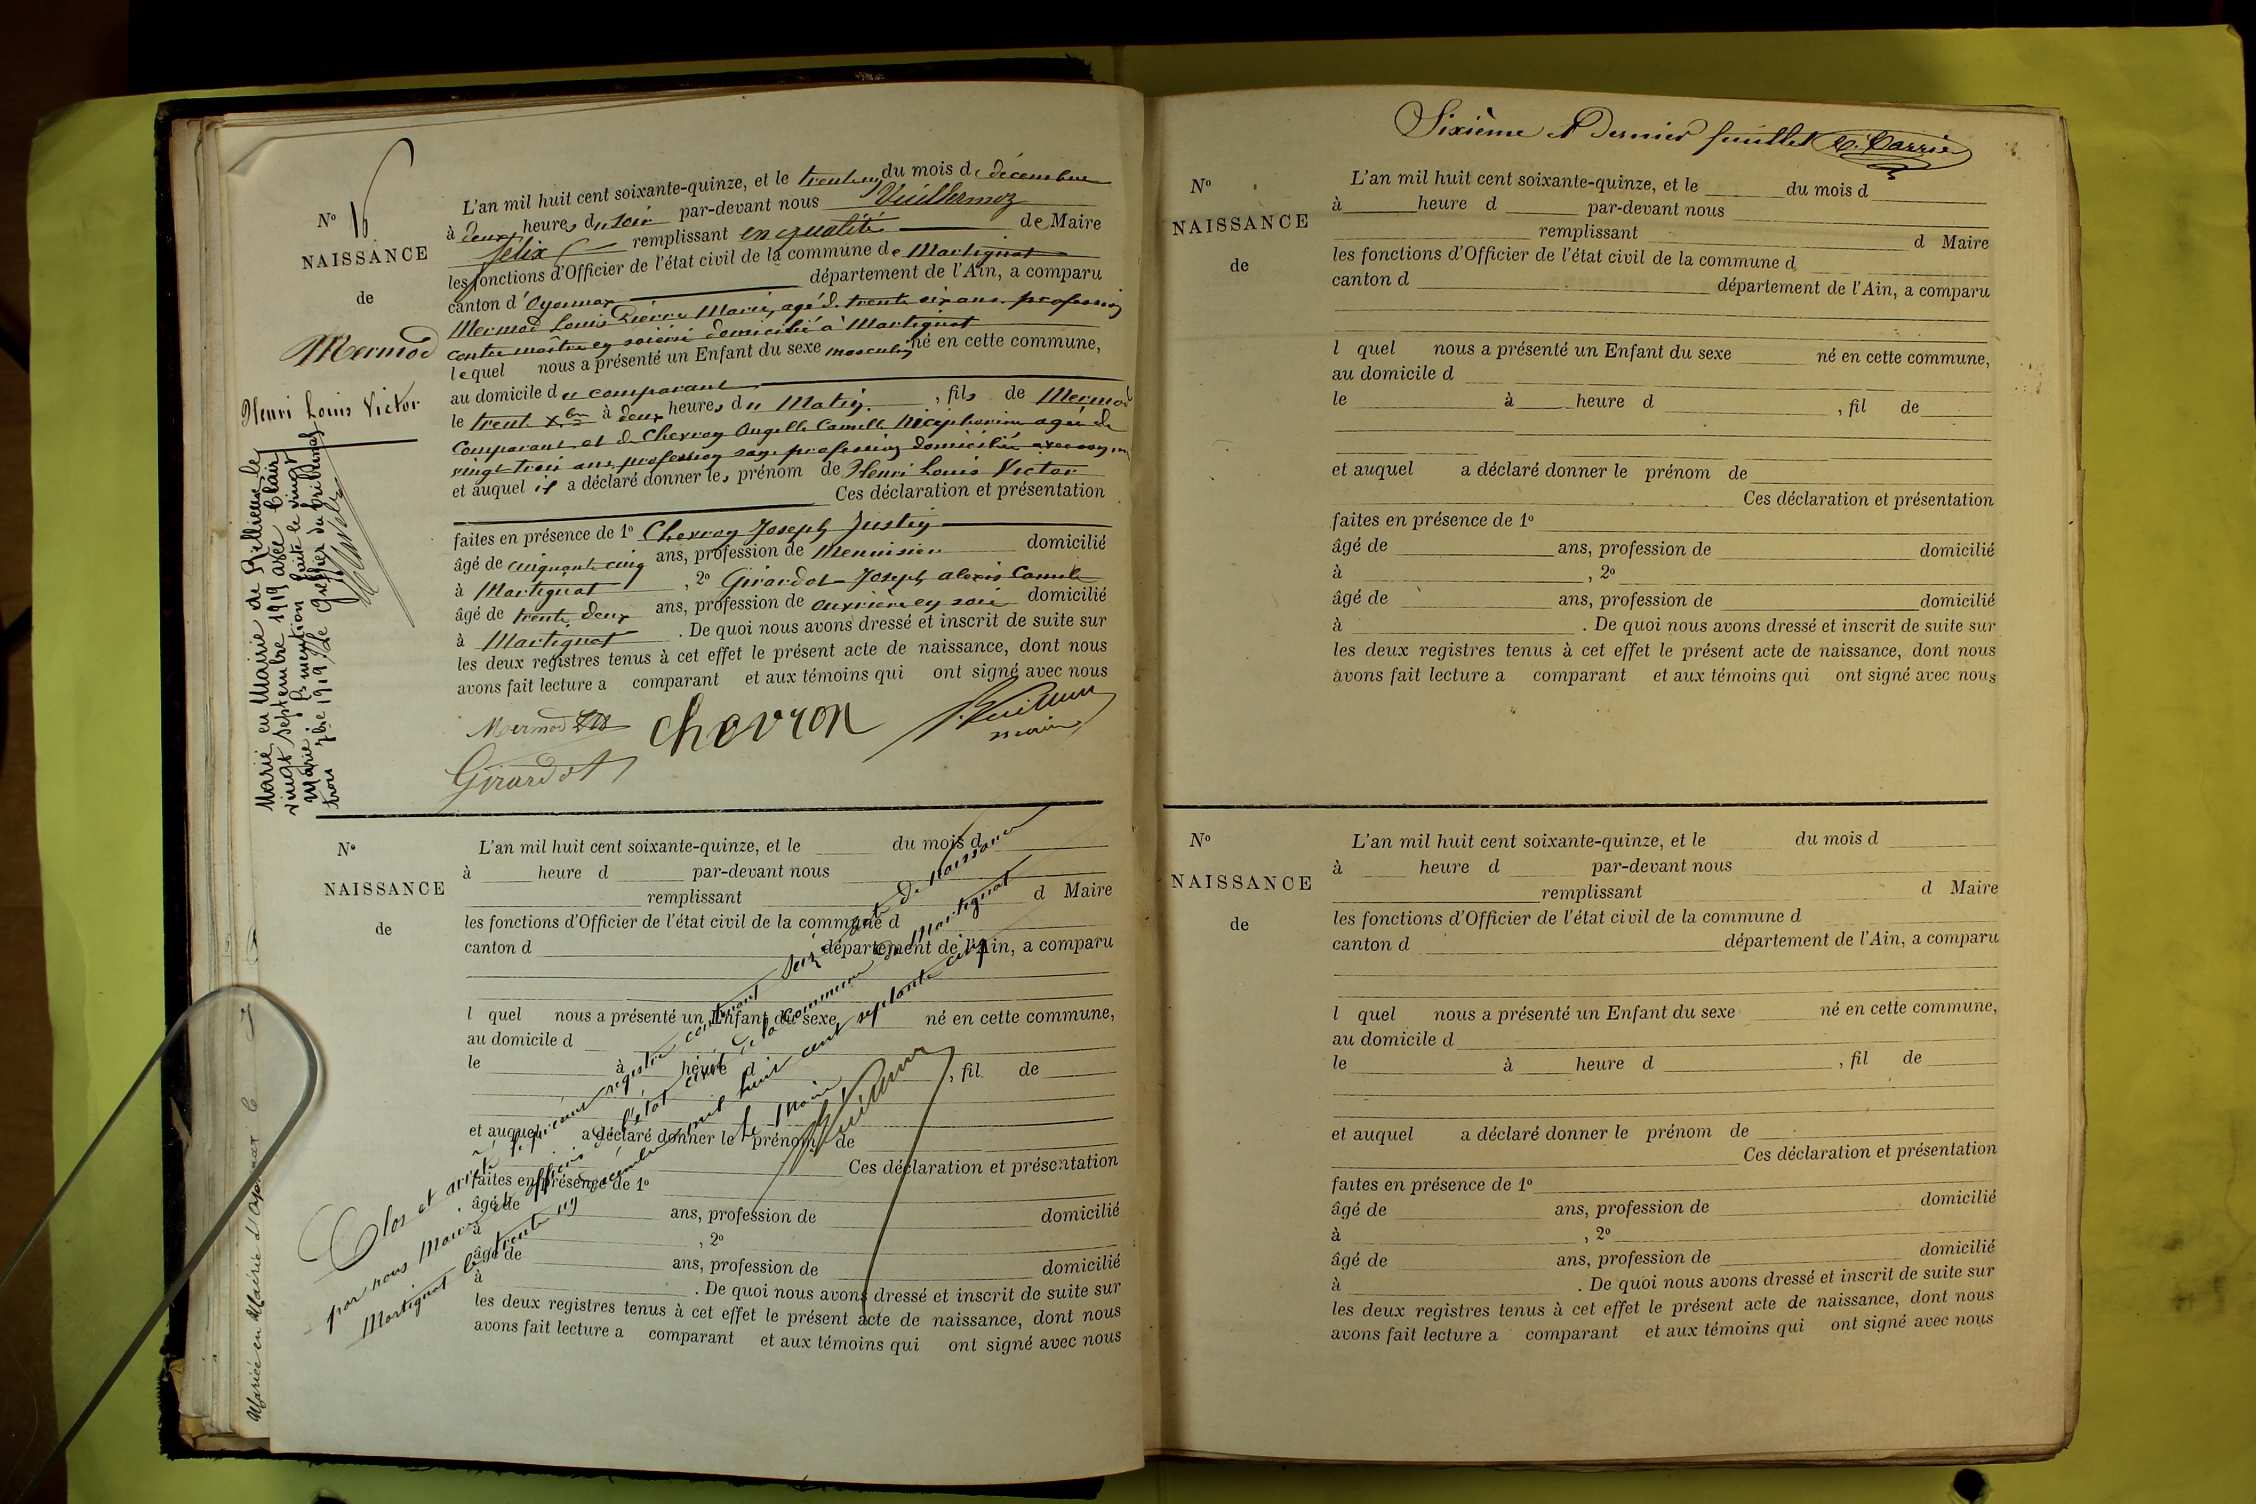 N° 16
NAISSANCE
de
Mermod
Henri Louis Victor
Marié en Mairie de Rillieux le
vingt septembre 1919 avec Clair
Marie. Ps mention faite le vingt
trois 7bre 1919. le Greffier du tribunal
L'an mil huit cent soixante-quinze, et le trente un du mois de décembre
à deux heures du soir par-devant nous Vuillermoz
félix remplissant en qualité de Maire
les fonctions d'Officier de l'état civil de la commune de Martignat
canton d'Oyonnax département de l'Ain, a comparu
Mermod Louis Pierre Marie, agé de trente six ans profession
contre maître en soierie domicilié à Martignat
lequel nous a présenté un Enfant du sexe masculin né en cette commune,
au domicile du comparant
le trente Xbre à deux heures du Matin, fils de Mermod
Comparant et de Chevron Angelle Camille Nicéphorine agée de
vingt trois ans profession sans profession domiciliée avec son
et auquel il a déclaré donner les prénom de Henri Louis Victor
Ces déclaration et présentation
faites en présence de 1° Chevron Joseph Justin
âgé de cinquante cinq ans, profession de Menuisier domicilié
à Martignat, 2° Girardot Joseph alexis Camile
âgé de trente deux ans, profession de ouvrière en soie domicilié
à Martignat. De quoi nous avons dressé et inscrit de suite sur
les deux registres tenus à cet effet le présent acte de naissance, dont nous
avons fait lecture a comparant et aux témoins qui ont signé avec nous
Mermod Chevron
maire
Girardot
N°
NAISSANCE
de
L'an mil huit cent soixante-quinze, et le du mois d
à heure d par-devant nous
remplissant d Maire
les fonctions d'Officier de l'état civil de la commune d
canton d département de l'Ain, a comparu
l quel nous a présenté un Enfant du sexe né en cette commune,
au domicile d
le à heure d , fil de
et auquel a déclaré donner le prénom de
Ces déclaration et présentation
faites en présence de 1°
âgé de ans, profession de domicilié
à , 2°
âgé de ans, profession de domicilié
à . De quoi nous avons dressé et inscrit de suite sur
les deux registres tenus à cet effet le présent acte de naissance, dont nous
avons fait lecture a comparant et aux témoins qui ont signé avec nous
Clos et arrêté le présent registre contenant seize actes de naissance
par nous Maire et officier de l'état civil de la commune de Martignat
Martignat le trente un décembre mil huit cent septante cinq
Le Maire,
Mariée en Mairie d'Oyonnax
Sixième et Dernier feuillet
N°
NAISSANCE
de
L'an mil huit cent soixante-quinze, et le du mois d
à heure d par-devant nous
remplissant d Maire
les fonctions d'Officier de l'état civil de la commune d
canton d département de l'Ain, a comparu
l quel nous a présenté un Enfant du sexe né en cette commune,
au domicile d
le à heure d , fil de
et auquel a déclaré donner le prénom de
Ces déclaration et présentation
faites en présence de 1°
âgé de ans, profession de domicilié
à , 2°
âgé de ans, profession de domicilié
à . De quoi nous avons dressé et inscrit de suite sur
les deux registres tenus à cet effet le présent acte de naissance, dont nous
avons fait lecture a comparant et aux témoins qui ont signé avec nous
N°
NAISSANCE
de
L'an mil huit cent soixante-quinze, et le du mois d
à heure d par-devant nous
remplissant d Maire
les fonctions d'Officier de l'état civil de la commune d
canton d département de l'Ain, a comparu
l quel nous a présenté un Enfant du sexe né en cette commune,
au domicile d
le à heure d , fil de
et auquel a déclaré donner le prénom de
Ces déclaration et présentation
faites en présence de 1°
âgé de ans, profession de domicilié
à , 2°
âgé de ans, profession de domicilié
à . De quoi nous avons dressé et inscrit de suite sur
les deux registres tenus à cet effet le présent acte de naissance, dont nous
avons fait lecture a comparant et aux témoins qui ont signé avec nous